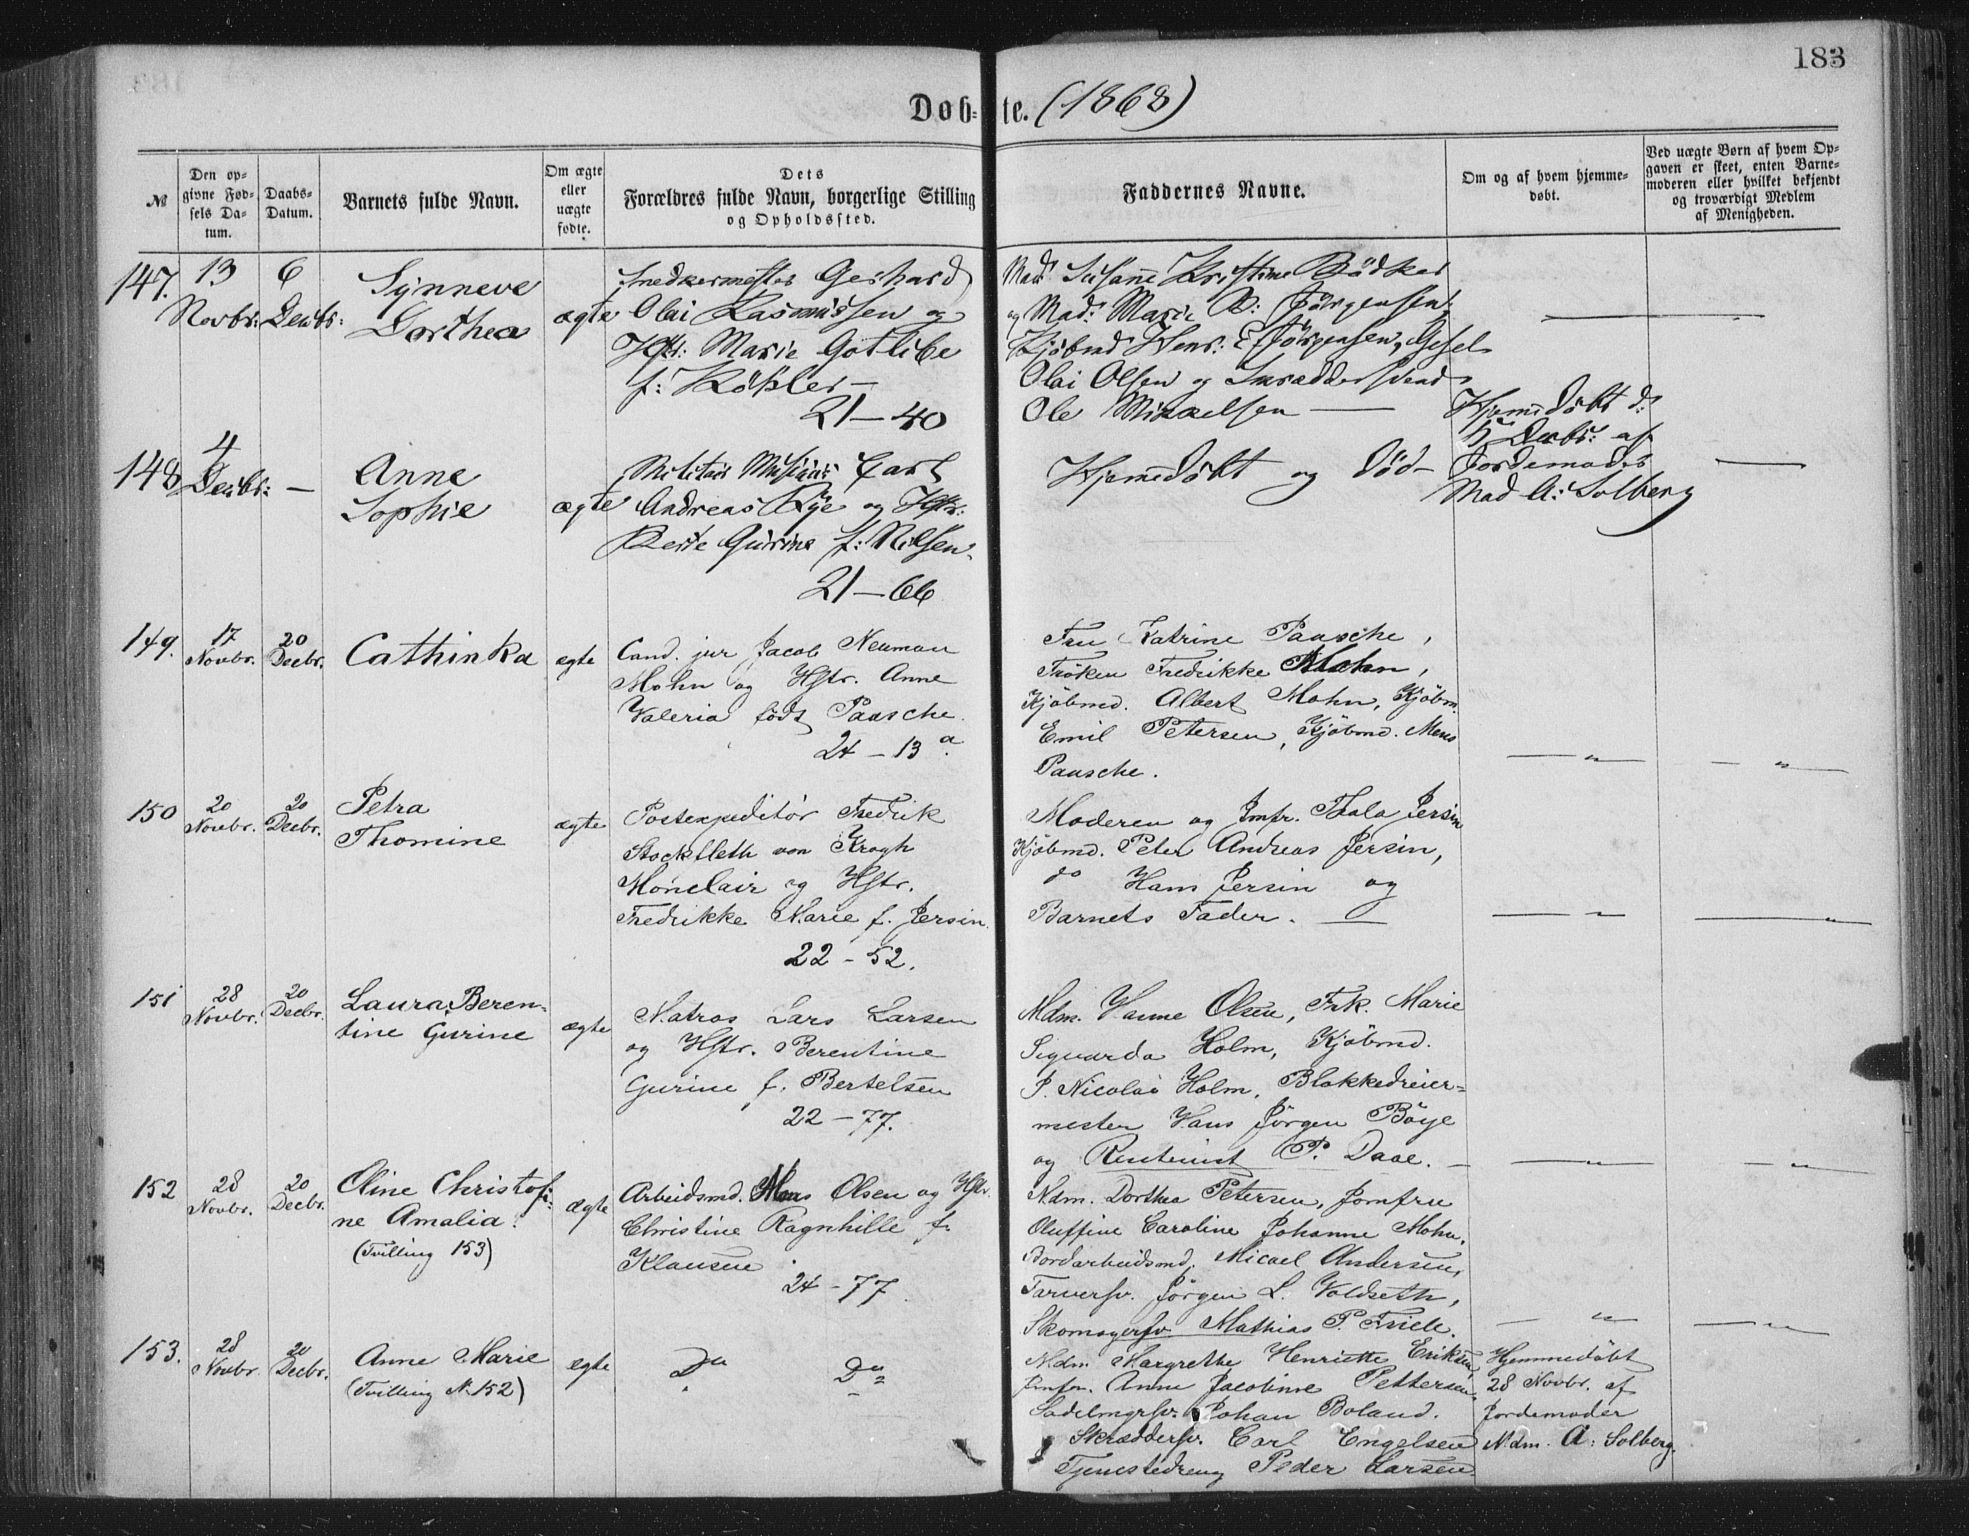 183
Døb-te. (1868)
№
Den op-
givne Fød-
sels Da-
tum.
Daabs-
Datum.
Barnets fulde Navn.
Om ægte
eller
uægte
fødte.
Dets
Forældres fulde Navn, borgerlige Stilling
og Opholdssted.
Faddernes Navne.
Om og af hvem hjemme-
døbt.
Ved uægte Børn af hvem Op-
gaven er skeet, enten Barne-
moderen eller hvilket bekjendt
og troværdigt Medlem
af Menigheden.
147.
13
Novbr:
6
Decbr:
Synneve
Dorthea
ægte
Snedkermester Gerhard
Olai Rasmussen og
Hstr: Marie Gotlibe
f: Köhler —
21 — 40
Mad: Susane Kristine Bödker
og Mad: Marie B: Jörgensen,
Kjöbmd Henr: E Jörgensen, Gesel
Olai Olsen og Skræddersvend
Ole Mikkelsen —
—
148
4
Decbr:
—
Anne
Sophie
ægte
Militair Musiker Carl
Andreas Rye og Hstr:
Berte Gurine f: Nilsen.
21 — 66
Hjemedöbt og död —
Hjemedöbt d:
5 Decbr: af
Jordemoder
Mad A: Solberg
—
149.
17
Novbr.
20
Decbr.
Cathinka
ægte
Cand. jur Jacob Neuman
Mohn og Hstr. Anne
Valeria född Paasche.
24 – 13 a.
Fru Katrine Paasche,
Fröken Fredrikke Mohn,
Kjöbmd. Albert Mohn, Kjöbm.
Emil Petersen, Kjöbmd. Mens
Paasche.
— " —
— " —
150
20
Novbr.
20
Decbr.
Petra
Thomine
ægte
Postexpeditör Fredrik
Stockfleth von Krogh
Monclair og Hstr.
Fredrikke Marie f. Jersin.
22 – 52.
Moderen og Jmfr. Thala Jersin
Kjöbmd. Peter Andreas Jersin,
do Hans Jersin og
Barnets Fader. —
— " —
— " —
151
28
Novbr.
20
Decbr.
Laura Beren-
tine Gurine
ægte
Matros Lars Larsen
og Hstr. Berentine
Gurine f. Bertelsen
22 – 77.
Mdm. Hanne Olsen, Frk. Marie
Siguarda Holm, Kjöbmd.
P. Nicolai Holm, Blokkedreier-
mester Hans Jörgen Böye
og Rentenist P. Daae. —
— " —
— " —
152
28
Novbr.
20
Decbr.
Oline Christofi-
ne Amalia.
(Tvilling 153)
ægte
Arbeidsmd. Mons Olsen og Hstr.
Christine Ragnhille f.
Klausen
24 – 77.
Mdm. Dorthea Petersen, Jomfru
Oluffine Caroline Johanne Mohn,
Bordarbeidsmd. Micael Andersen,
Farversv. Jörgen L. Voldseth,
Skomagersv. Mathias P. Friele.
— " —
— " —
153.
28
Novbr
20
Decbr.
Anne Marie
(Tvilling N. 152)
ægte
Do Do
Mdm. Margrethe Henriette Eriksen,
Jmfr. Anne Jacobine Pettersen,
Sadelmgrsv. Johan Boland.
Skræddersv. Carl Engelsen
Tjenestedreng Peder Larsen.
Hjemmedöbt
28 Novbr. af
Jordemoder
Mdm. A: Solberg.